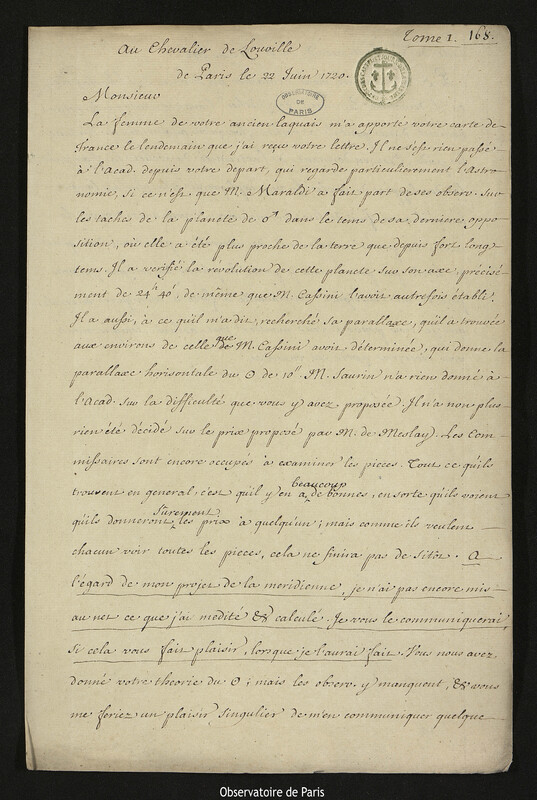 Tome 1. 168.
Au Chevalier de Louville
de Paris le 22 Juin 1720.
OBSERVATOIRE DE PARIS
Monsieur
La femme de votre ancien laquais m'a apporté votre carte de
France le lendemain que j'ai reçu votre lettre. Il ne s'est rien passé
à l'Acad. depuis votre depart, qui regarde particulierement l'Astro-
nomie, si ce n'est que M. Maraldi a fait part de ses observ. sur
les taches de la planete de ♂ dans le tems de sa derniere oppo-
sition, où elle a été plus proche de la terre que depuis fort long-
tems. Il a verifié la revolution de cette planete sur son axe, précisé-
ment de 24h 40', de même que M. Cassini l'avoit autrefois établi.
Il a aussi, à ce qu'il m'a dit, recherché sa parallaxe, qu'il a trouvée
aux environs de celle que M. Cassini avoit déterminée, qui donne la
parallaxe horisontale du ☉ de 10". M. Saurin n'a rien donné à
l'Acad. sur la difficulté que vous y avez proposée. Il n'a non plus
rien été décidé sur le prix proposé par M. de Meslay. Les Com-
missaires sont encore occupés à examiner les pieces. Tout ce qu'ils
trouvent en general, c'est qu'il y en a beaucoup de bonnes, en sorte qu'ils voient
qu'ils donneront surement les prix à quelqu'un; mais comme ils veulent
chacun voir toutes les pieces, cela ne finira pas de sitôt. A
l'égard de mon projet de la meridienne, je n'ai pas encore mis
au net ce que j'ai medité & calculé. Je vous le communiquerai,
si cela vous fait plaisir, lorsque je l'aurai fait. Vous nous avez
donné votre theorie du ☉; mais les observ. y manquent, & vous
me feriez un plaisir singulier de m'en communiquer quelque
Observatoire de Paris